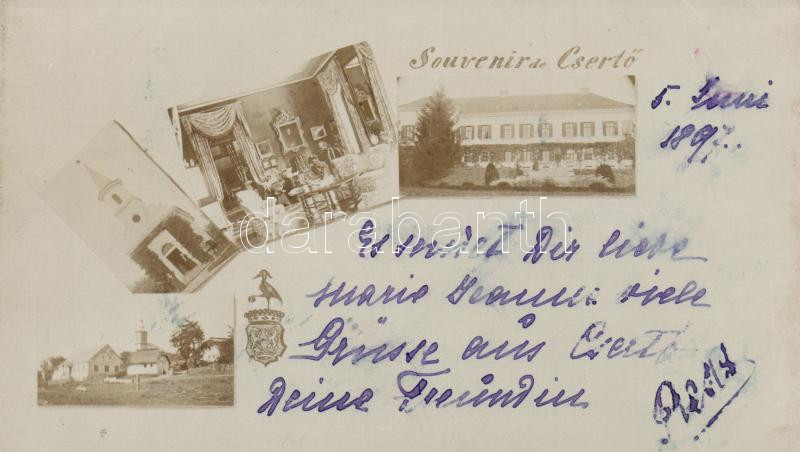 Souvenir de Csertő
5. Juni
1897.
Es sendet Dir liebe
Marie Jeanne viele
Grüsse aus Csertő
Deine Freundin
darabanth.com